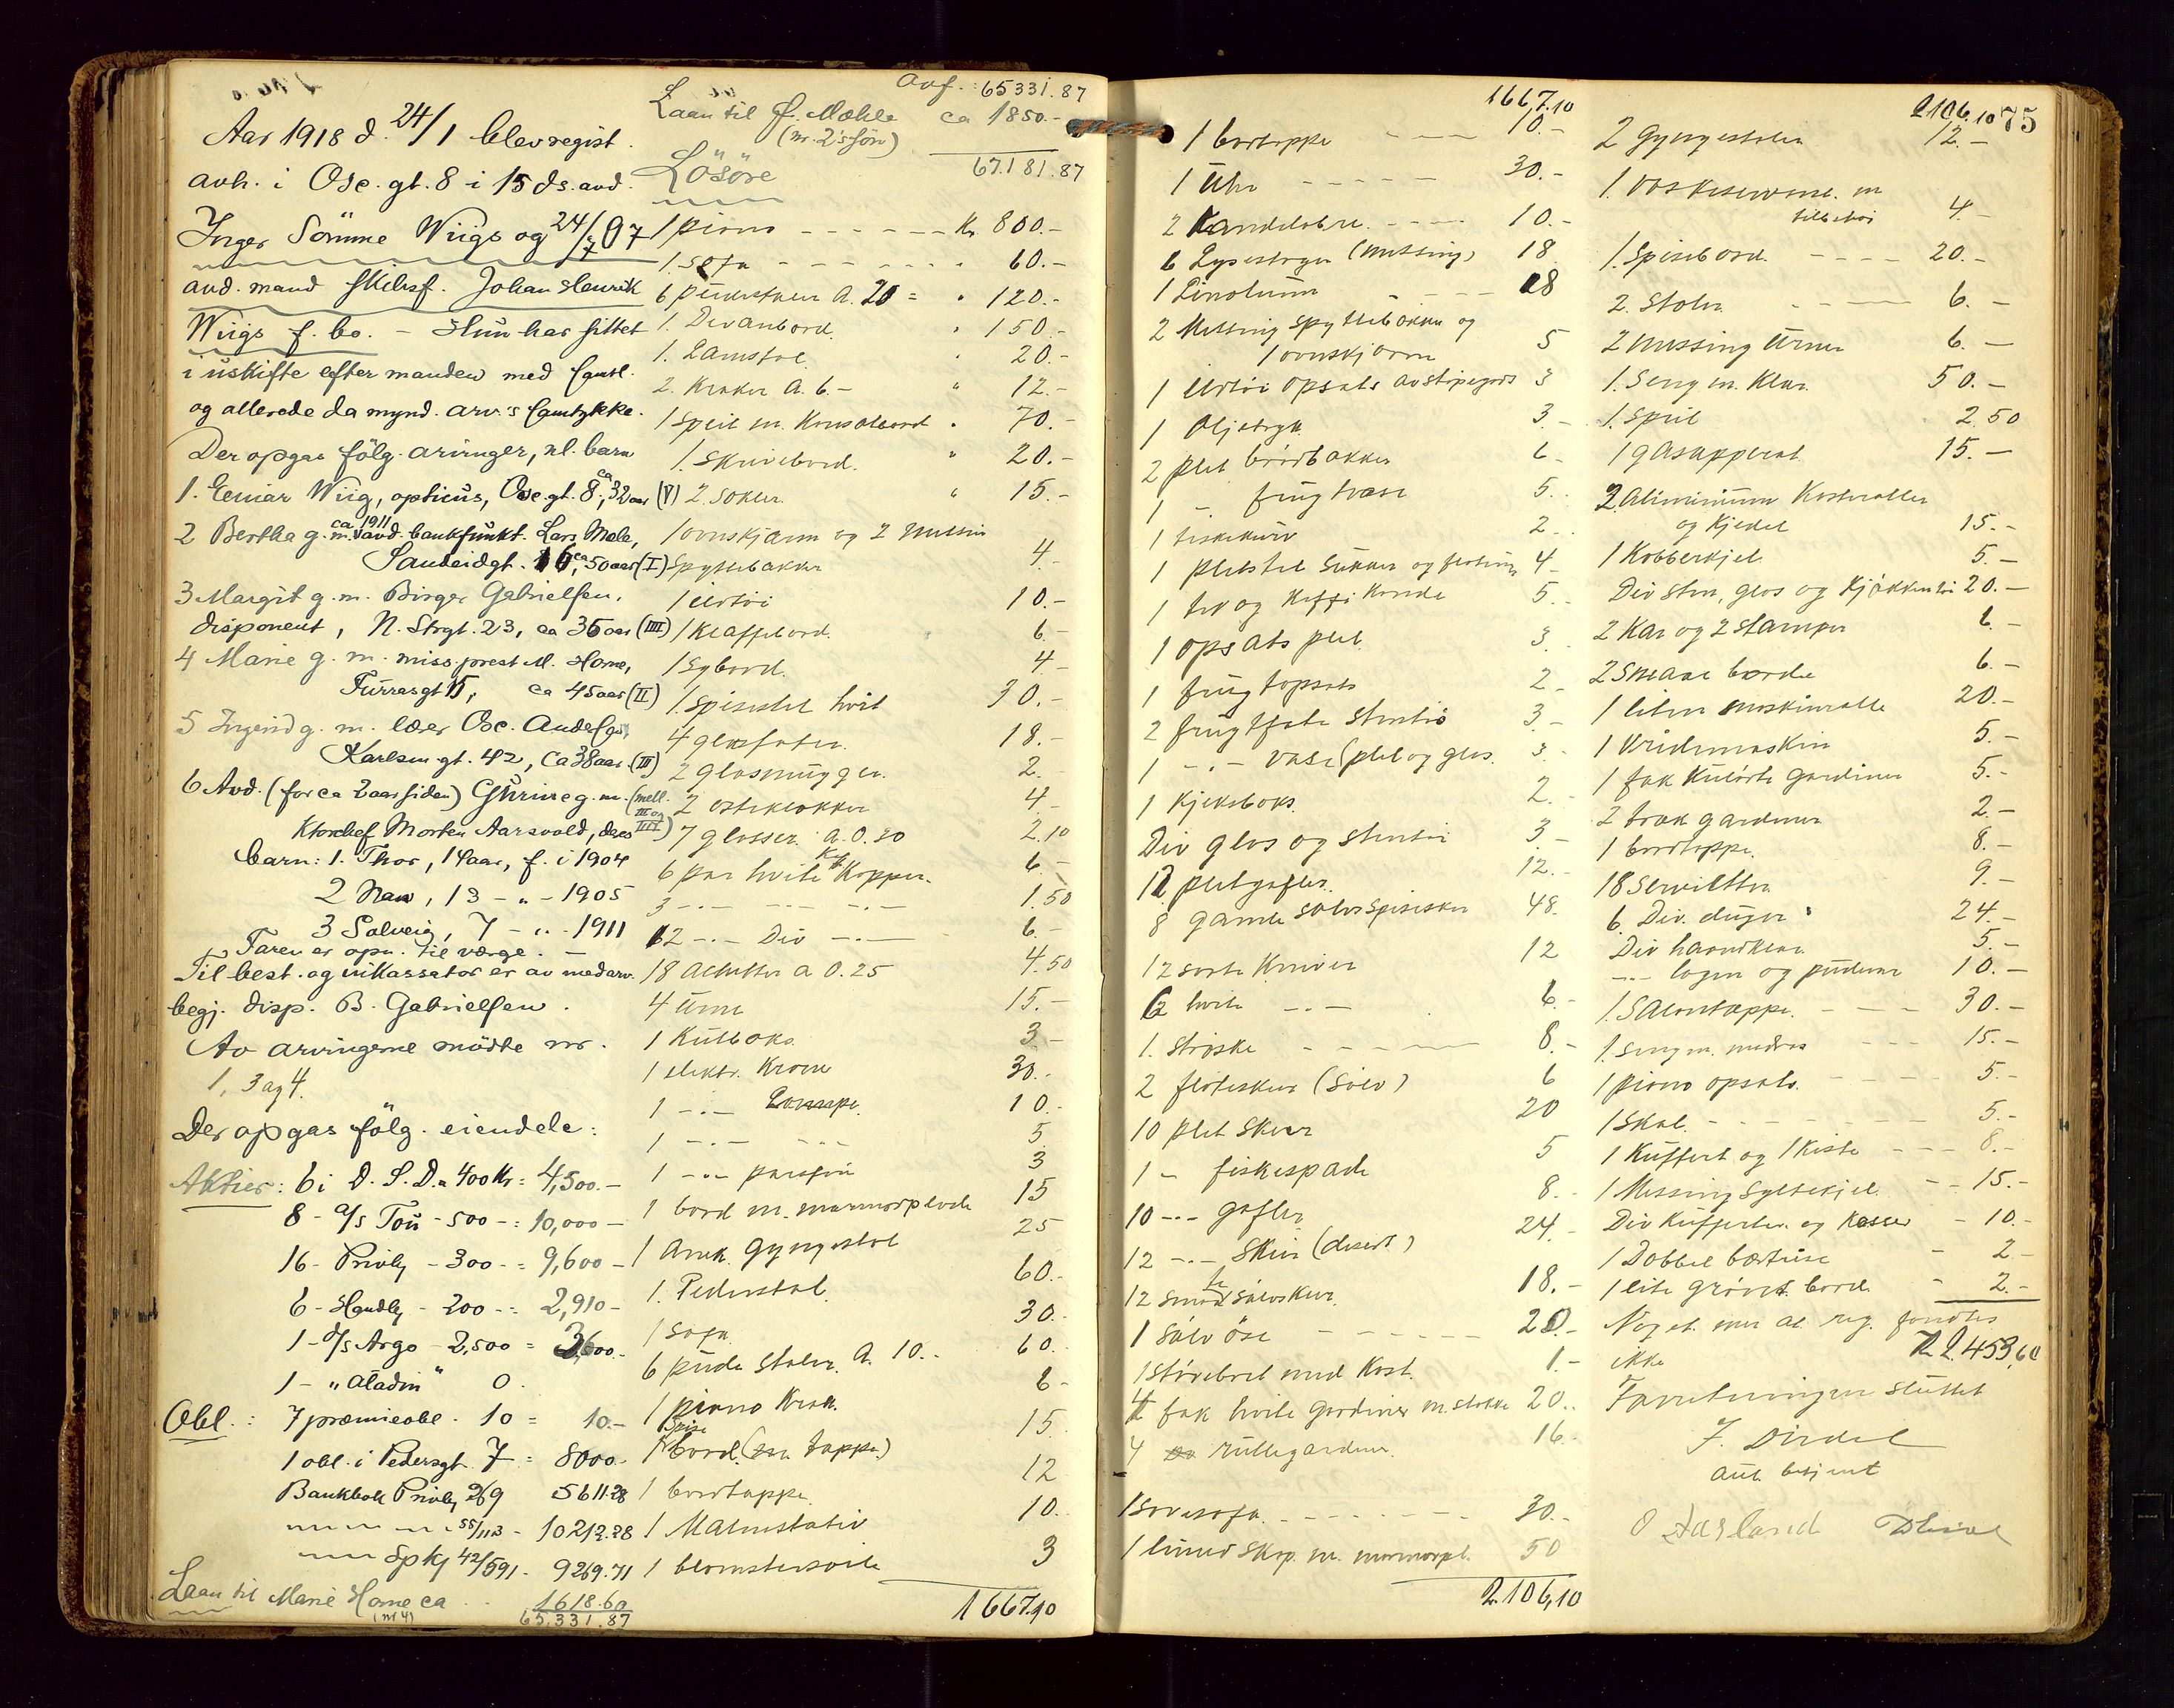 Aar 1918 d. 24/1 blev regist.
avh. i Osc. gt. 8 i 15 ds. avd.
Inger Sömme Wiigs og 24/7 07
avd. mand skibsf. Johan Henrik
Wiigs f. bo. – Hun har sittet
i uskifte efter manden med samtl.
og allerede da mynd. arv.s samtykke.
Der opgas fölg. arvinger, nl. barn
1. Einar Wiig, opticus, Osc. gt. 8, ca 32 aar (V)
2 Bertha g. m. ca 1911 avd. bankfunkt. Lars Mæle,
Sandeidgt. 16, ca 50 aar (I)
3 Margit g. m. Birger Gabrielsen,
disponent, N. Strgt. 23, ca 35 aar (IIII)
4 Marie g. m. miss.prest M. Horne,
Furrasgt 15, ca 45 aar (II)
5 Ingerid g. m. lærer Osc. Andersen,
Karlsmgt. 42, ca 38 aar. (III)
6 Avd. (for ca 2 aar siden) Gurine g. m. (mell. III og IIII)
Ktorchef Morten Aarsvold, deres
barn: 1. Thor, 14 aar, f. i 1904
2 Nan, 13 – „ – 1905
3 Solveig, 7 – „ – 1911
Faren er opn. til værge. –
Til best. og inkassator er av medarv.
begj. disp. B. Gabrielsen.
Av arvingerne mödte nr.
1, 3 og 4.
Der opgas fölg. eiendele:
Aktier: 6 i D. S. D. a 400 Kr = 4,500.–
8 – A/s Tou – 500 – = 10,000 –
16 – Privby – 300 – = 9,600 –
6 – Handby – 200 – = 2,910 –
1 – A/s Argo – 2,500 = 3,600.–
1 – „Aladin“ 0.
Obl.: 7 præmieobl. 10 = 10.–
1 obl. i Pedersgt. 7 = 8000.–
Bankbok Privby 269 5611.28
55/113 – 10212.28
Spkj 42/591 – 9269.71
Laan til Marie Horne ca 1618.60
(nr 4) 65,331.87
Ovf.: 65331.87
Laan til J. Mæhle ca 1850.–
(nr. 2's sön)
67.181.87
Lösöre
1 piano – – – – – – Kr 800.–
1. Sofa – – – – – – „ 60.–
6 pudestoler a. 20 = „ 120.–
1. Divanbord. „ 150.–
1. Lænstol. „ 20.–
2. Kraker a. 6.– „ 12.–
1 speil m. Konsolbord „ 70.–
1. Skrivebord. „ 20.–
2. Sokler. „ 15.–
1 ovnskjærm og 2 Messin
Spyttebakker 4.–
1 Urtöi 10.–
1 Klaffebord. 6.–
1 Sybord. 4–
1. Spisestel hvit 30.–
4 glasfater. 18.–
2 glasmugger. 2.–
2 osteklokker 4–
7 glasser a. 0.30 2.10
6 par hvite Kaf Kopper. 6.–
3 –.– –.– –.– 1.50
12 –.– Div –.– 6.–
18 Asietter a 0.25 4.50
4 Urne 15.–
1 Kulboks 3–
1 elektr. Krone 30.–
1 –.– Lampe. 10.–
1 –.– –.– 5
1 –.– parafin 3
1 bord m. marmorplade 15
1 Amk. Gyngestol 25
1. Pederstal. 60.–
1 Sofa 30.–
6 pude stoler. a. 10.– 60.–
1 piano Krak. 6–
1 Spisebord. (m. tæppe) 15
1 bordtæppe. 12
1 Malmstativ 10.
1 blomstersoile 3
1667.10
1667.10
1 bordtæppe – – – 10.–
1 Uhr – – – – – 30.–
2 Kandelabre. – – – – 10.–
6 Lysestager (messing) 18
1 Linolium – – – – 18
2 Messing Spyttebakker og
1 ovnskjærm 5
1 Urtöi opsats av stöpegods 3
1 Oljetryk. 3.–
2 plet brödbakker 6–
1 – frugtvase 5.–
1 fiskekurv 2–
1 pletstel Sukker og flötemug 4–
1 te og Kaffi Kande 5–
1 opsats plet. 3.–
1 frugtopsats 2–
2 frugtfate stentöi 3.–
1 –.– vase (plet og glas. 3.–
1 Kjeksboks. 2.–
Div glas og stentöi 3.–
12 pletgafler. 12.–
8 gamle sölvspiseskeer 48.
12 sorte Kniver 12
12 hvite –.– 6.–
1. Ströske – – – – – 8.–
2 flöteskeer (Sölv) 6
10 plet skeer 20
1 – fiskespade 5
10 –.– gafler 8.–
12 –.– Skeer (desert) 24.–
12 smaa te sölvskeer. 18.–
1 Sölv öse – – – – – 20.–
1 stövebret med Kost. 1.–
4 fak hvite gardiner m. stokke 20.–
4 rullegardiner. 16.–
1 sovesofa. – – – – – 30.–
1 linned skap. m. marmorpl. 50
2.106,10
2106.10 75
2 Gyngestoler 12.–
1. Vaskeservise. m
tilbehör 4.–
1. Spisebord. – – – – 20.–
2. Stoler. 6.–
2 Messing Urner 6.–
1. Seng m. Klær. 50.–
1. Speil 2.50
1 gasapparat. 15.–
2 Aluminium Kasteroller
og Kjedel 15.–
1 Kobberkjel. 5.–
Div sten, glas og Kjökkentöi 20.–
2 Kar og 2 stamper 6.–
2 Smaae borde 6.–
1 liten maskinrulle 20.–
1 Vridemaskin 5.–
1 fak Kulörte gardiner 5.–
2 træk gardiner 2–
1 bordtæppe. 8.–
18 Servietter 9.–
6. Div. duger 24.–
Div haandklær. 5.–
–.– lagen og pudevar 10.–
1. Salontæppe. – – – 30.–
1. seng m. madras – – – 15.–
1 piano opsats. – – – – 5.–
1 Skal. – – – – – 5.–
1 Kuffert og 1 Kiste – – – 8.–
1 Messing Syltekjel. – – 15.–
Div Kufferter og Kasser – 10.–
1 Dobbel bærtuse – 2–
1 lite grönt bord. – 2.–
Noget mer at reg. fandtes
ikke Kr 2.453,60
Forretningen sluttet
J. Dirdal
aut. betjent
O Aasland